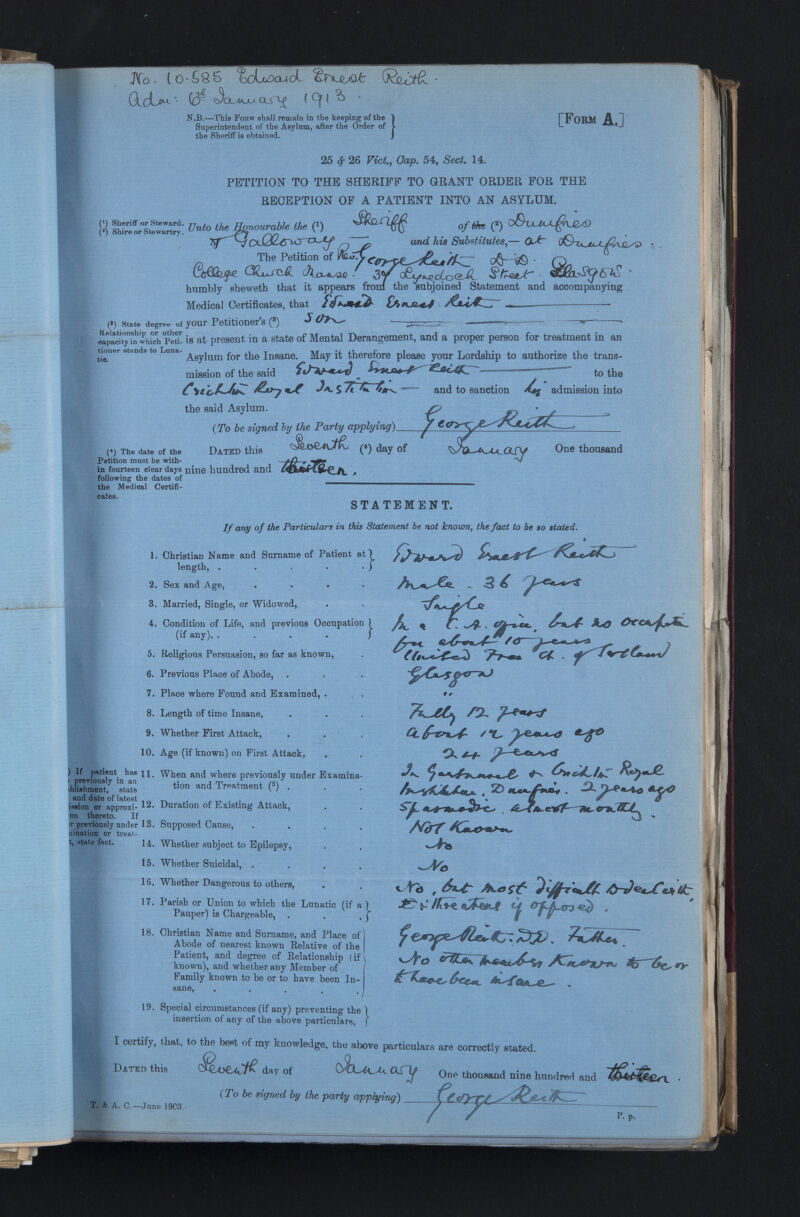 No. 10.585 Edward Ernest Reith.
Adm: 8th January 1913.
N.B.—This Form shall remain in the keeping of the
Superintendent of the Asylum, after the Order of
the Sheriff is obtained.
[Form A.]
25 & 26 Vict., Cap. 54, Sect. 14.
PETITION TO THE SHERIFF TO GRANT ORDER FOR THE
RECEPTION OF A PATIENT INTO AN ASYLUM.
(¹) Sheriff or Steward.
(²) Shire or Stewartry.
Unto the Honourable the (¹) Sheriff of the (²) Dumfries
& Galloway and his Substitutes,— at Dumfries.
The Petition of Rev. George Reith D.D.
College Church Manse. 37 Lynedoch Street. Glasgow.
humbly sheweth that it appears from the subjoined Statement and accompanying
Medical Certificates, that Edward Ernest Reith
(³) State degree of
Relationship or other
capacity in which Peti-
tioner stands to Luna-
tic.
your Petitioner's (³) Son
is at present in a state of Mental Derangement, and a proper person for treatment in an
Asylum for the Insane. May it therefore please your Lordship to authorize the trans-
mission of the said Edward Ernest Reith to the
Crichton Royal Institution and to sanction his admission into
the said Asylum.
(To be signed by the Party applying) George Reith
(⁴) The date of the
Petition must be with-
in fourteen clear days
following the dates of
the Medical Certifi-
cates.
Dated this Seventh (⁴) day of January One thousand
nine hundred and thirteen.
STATEMENT.
If any of the Particulars in this Statement be not known, the fact to be so stated.
1. Christian Name and Surname of Patient at
length, . . . . . Edward Ernest Reith
2. Sex and Age, . . . . Male. 36 years
3. Married, Single, or Widowed, . . Single
4. Condition of Life, and previous Occupation
(if any). . . . . In a C.A. office, but no occupation
for about 10 years
5. Religious Persuasion, so far as known, . United Free Ch. of Scotland
6. Previous Place of Abode, . . . Glasgow
7. Place where Found and Examined, . . "
8. Length of time Insane, . . . Fully 12 years
9. Whether First Attack, . . . About 12 years ago
10. Age (if known) on First Attack, . . 24 years
) If patient has
previously in an
blishment, state
and date of latest
ission or approxi-
on thereto. If
r previously under
mination or treat-
t, state fact.
11. When and where previously under Examina-
tion and Treatment (⁵) . . In Gartnavel & Crichton Royal
Institution, Dumfries. 2 years ago
12. Duration of Existing Attack, . . Spasmodic. almost monthly.
13. Supposed Cause, . . . . Not Known
14. Whether subject to Epilepsy, . . No
15. Whether Suicidal, . . . . No
16. Whether Dangerous to others, . . No, but most difficult to deal with,
& threatens if opposed.
17. Parish or Union to which the Lunatic (if a
Pauper) is Chargeable, . . .
18. Christian Name and Surname, and Place of
Abode of nearest known Relative of the
Patient, and degree of Relationship (if
known), and whether any Member of
Family known to be or to have been In-
sane, . . . . . .
George Reith. D.D. Father.
No other member known to be or
to have been insane.
19. Special circumstances (if any) preventing the
insertion of any of the above particulars,
I certify, that, to the best of my knowledge, the above particulars are correctly stated.
Dated this Seventh day of January One thousand nine hundred and thirteen.
(To be signed by the party applying) George Reith
T. & A. C.—June 1903.
P. p.